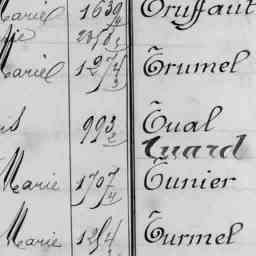 Marie 1639/4 Truffaut
2505/3
Mariel 1274/3 Trumel
993/2 Tual
Tuard
Marie 1707/4 Tunier
Marie 1254 Turmel